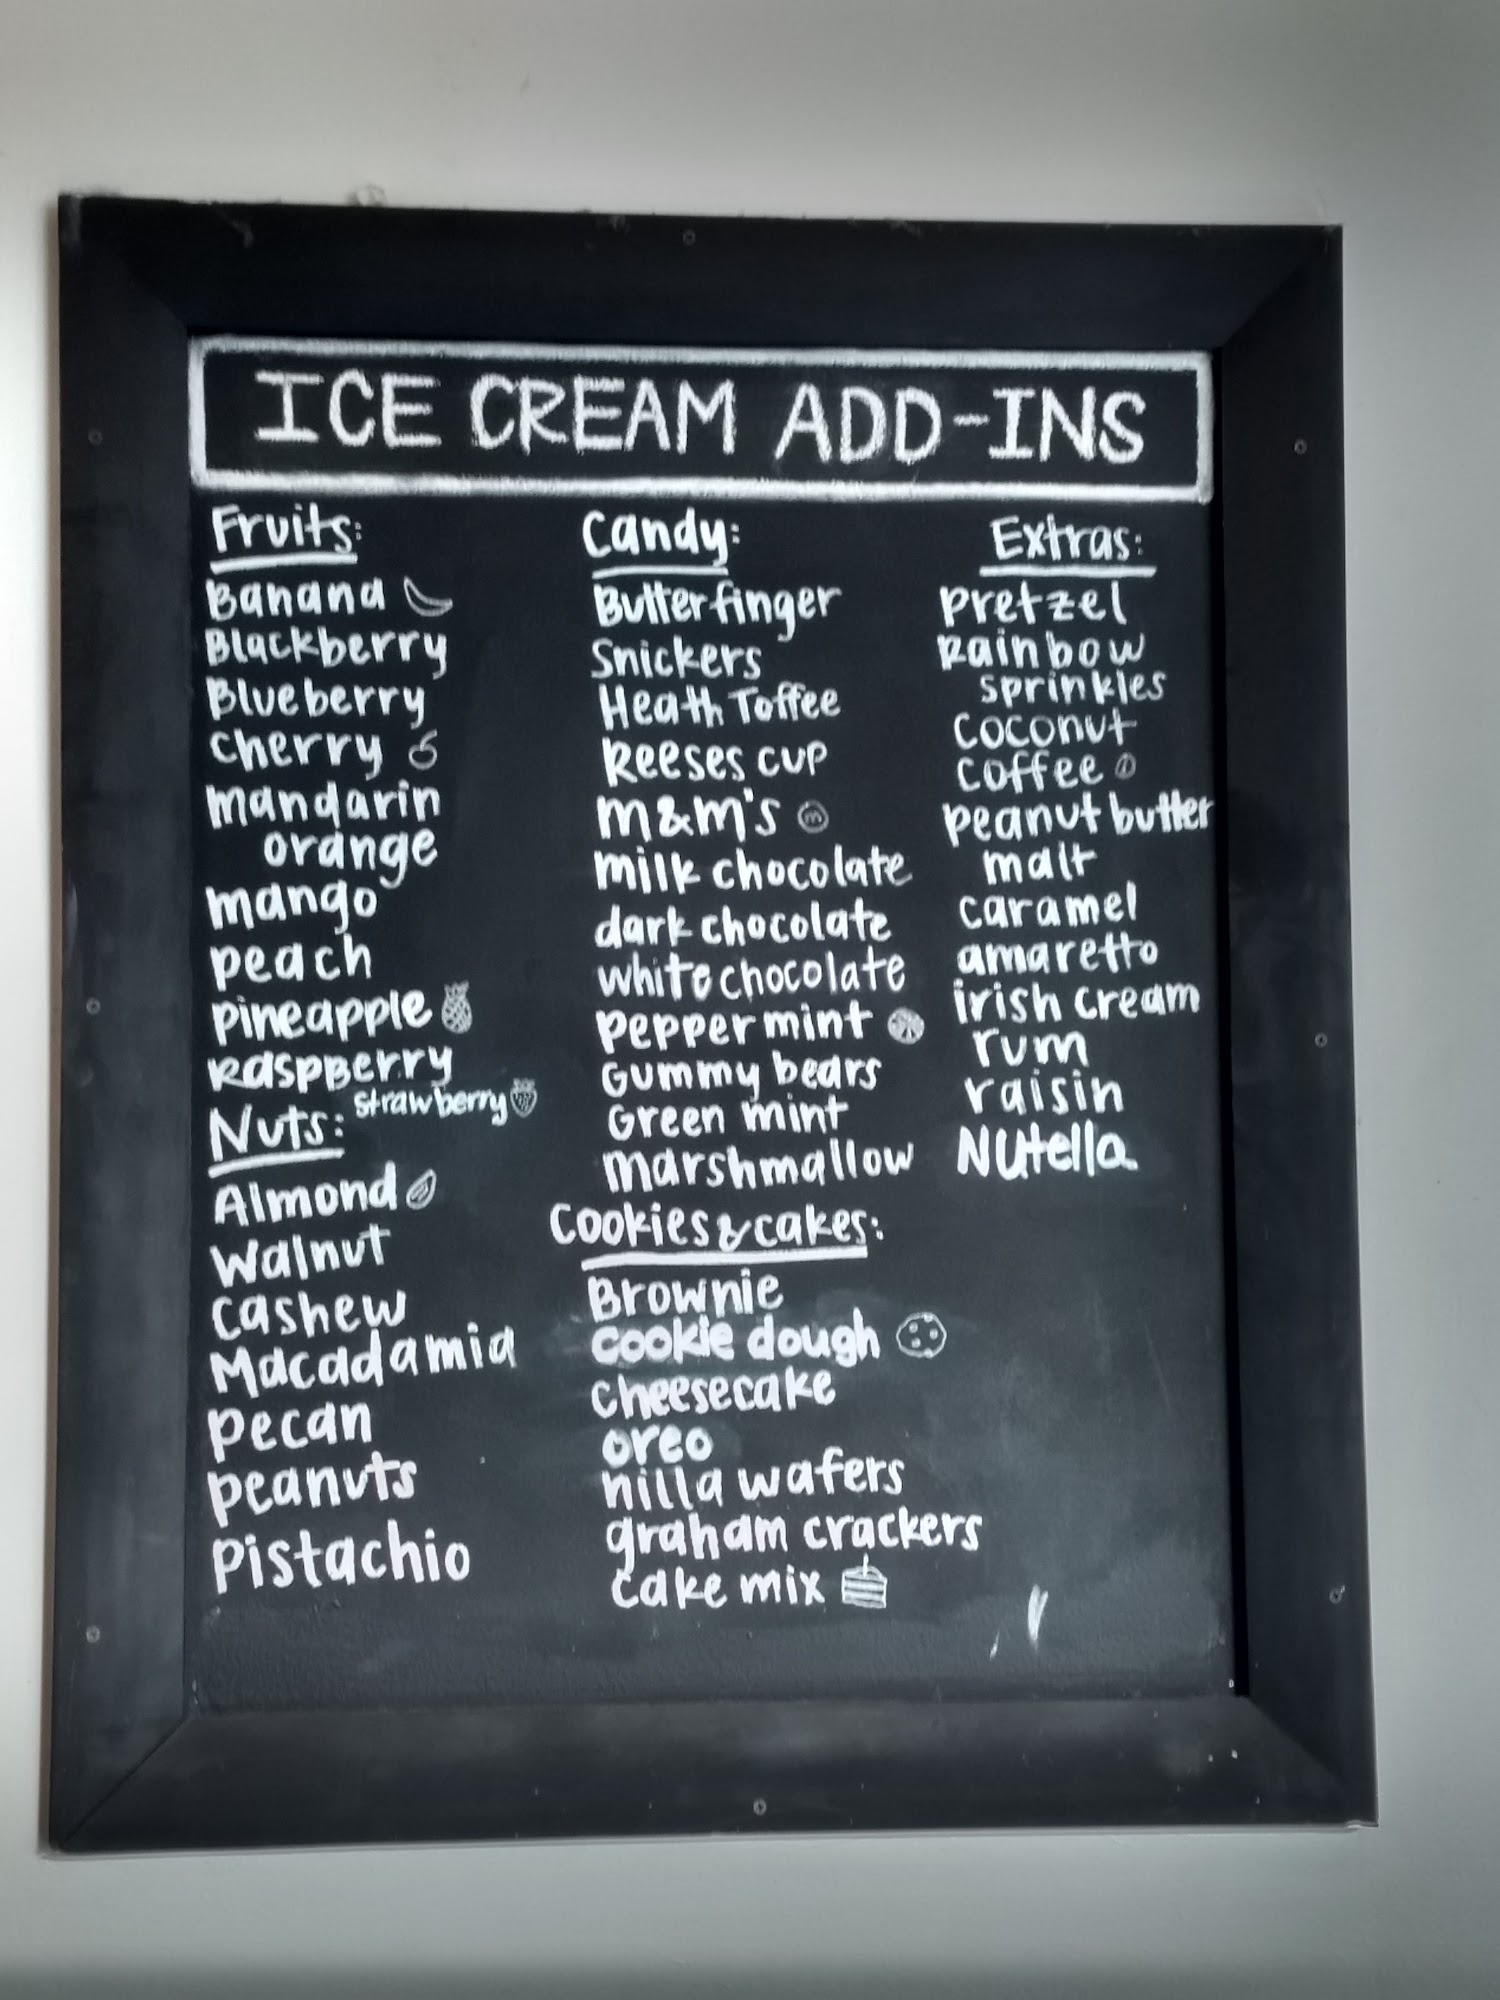 ICE CREAM ADD-INS
Fruits:
Banana
Blackberry
Blueberry
Cherry
mandarin
orange
mango
peach
pineapple
Raspberry
strawberry
Nuts:
Almond
Walnut
Cashew
Macadamia
pecan
peanuts
Pistachio
Candy:
Butterfinger
Snickers
Heath Toffee
Reeses cup
m&m's
m
milk chocolate
dark chocolate
white chocolate
peppermint
Gummy bears
Green mint
marshmallow
Cookies & cakes:
Brownie
cookie dough
cheesecake
oreo
nilla wafers
graham crackers
cake mix
Extras:
pretzel
Rainbow
sprinkles
coconut
coffee
peanut butter
malt
caramel
amaretto
irish cream
rum
raisin
Nutella